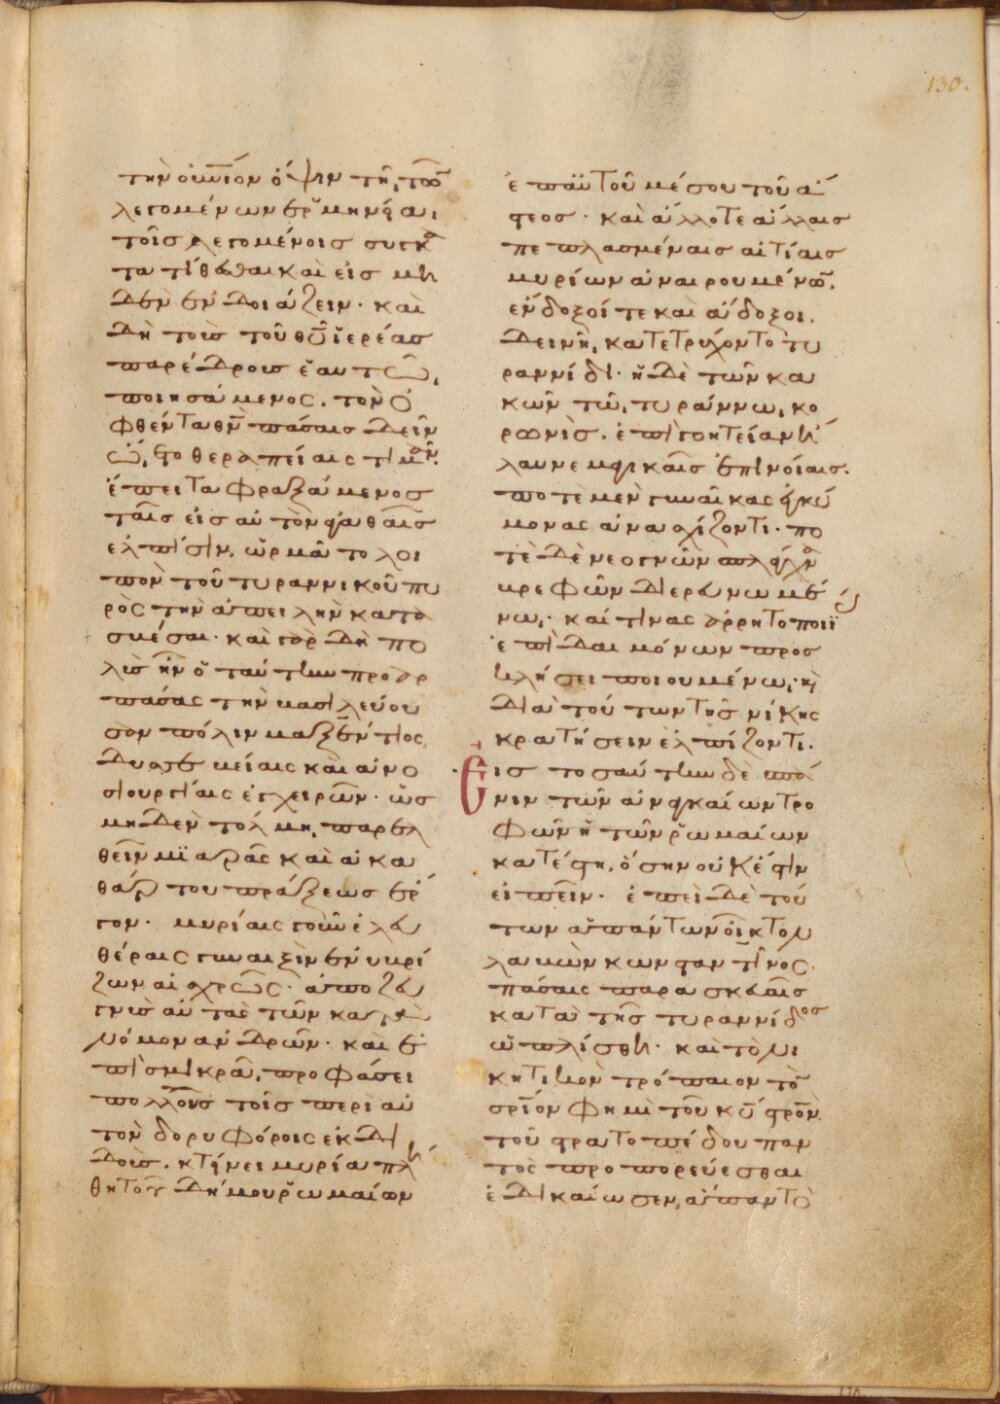 τὴν οὐ̅νιον ὄψιν τῆι τῶν
λεγομένων ἑρμηνείαι
τοῖς λεγομένοις συγκα
τατίθεσθαι καὶ εἰς μη
δὲν ἐνδοιάζειν· καὶ
δὴ τοὺς τοῦ θ̅υ̅ ἱερέας
παρέδρους ἑαυτῶι
ποιησάμενος. τὸν ὀ
φθέντα θ̅ν̅ πάσαις δεῖν
ὤιετο θεραπείαις τιμᾶν.
ἔπειτα φραξάμενος
ταῖς εἰς αὐτὸν ἀγαθαῖς
ἐλπίσιν, ὥρμα τὸ λοι
πὸν τοῦ τυραννικοῦ πυ
ρὸς τὴν ἀπειλὴν κατα
σβέσαι· καὶ γὰρ δὴ πο
λὺς ἦν ὁ ταύτην προαρ
πάσας τὴν βασιλεύου
σαν πόλιν μαξέντιος
δυσσεβείαις καὶ ἀνο
σιουργίαις ἐγχειρῶν· ὡς
μηδὲν τόλμηι παρελ
θεῖν μϊαρᾶς καὶ ἀκα
θάρτου πράξεως ἔρ
γον· μυρίαις γοῦν ἐλευ
θέραις γυναιξὶν ἐνυβρί
ζων αἰσχρῶς· ἀποζευ
γνὺς αὐτὰς τῶν κατὰ
νόμον ἀνδρῶν· καὶ ἐ
πὶ σμικρᾶι προφάσει
πολλοὺς τοῖς περὶ αὐ
τὸν δορυφόροις ἐκδι
δούς· κτίνει μυρία πλή
θη τοῦ δήμου ῥωμαίων
130.
ἐπαὐτοῦ μέσου τοῦ ἄ
στεος· καὶ ἄλλοτε ἄλλαις
πεπλασμέναις αἰτίαις
μυρίων ἀναιρουμένων.
ἔνδοξοί τε καὶ ἄδοξοι.
δεινῆι κατετρύχοντο τυ
ραννίδι· ἡ δὲ τῶν κα
κῶν τῶι τυράννωι κο
ρωνὶς. ἐπὶ γοητείαν ἤ
λαυνε μαγικαῖς ἐπινοίαις.
ποτὲ μὲν γυναῖκας ἐγκύ
μονας ἀνασχίζοντι· πο
τὲ δὲ νεογνῶν σπλάγχνα
βρεφῶν διερευνωμέ
νωι· καί τινας ἀρρητοποιΐας
ἐπὶ δαιμόνων προσ
κλήσει ποιουμένωι· καὶ
διὰ τούτων τῆς νίκης
κρατήσειν ἐλπίζοντι.
Εἰς τοσαύτην δὲ σπά
νιν τῶν ἀναγκαίων τρο
φῶν ἡ τῶν ῥωμαίων
κατέστη, ὅσην οὐκ ἔστιν
εἰπεῖν· ἐπεὶ δὲ τού
των ἁπάντων οἶκτον
λαβὼν κωνσταντῖνος.
πάσαις παρασκευαῖς
κατὰ τῆς τυραννίδος
ὡπλίσθη· καὶ τὸ νι
κητικὸν τρόπαιον τὸν
σ̅ρ̅ιόν φημι τοῦ κ̅υ̅ σ̅ρ̅ὸν.
τοῦ στρατοπέδου παν
τὸς προπορεύεσθαι
ἐδικαίωσεν, ἅπαντο